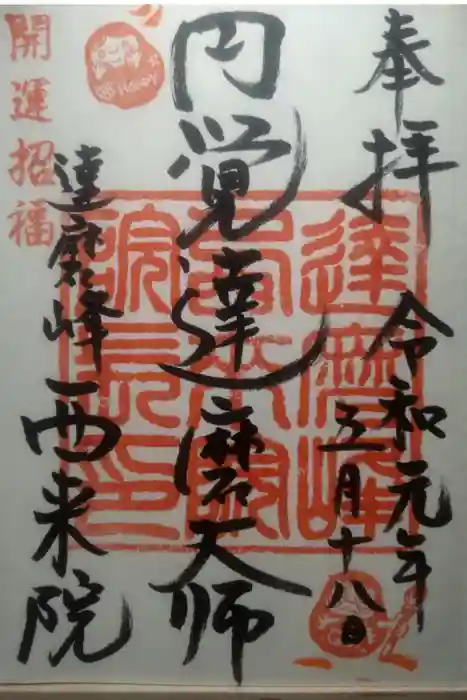 奉拝
令和元年
五月十八日
円覚達磨大師
達磨峰西来院
開運招福
達磨峰
院長印